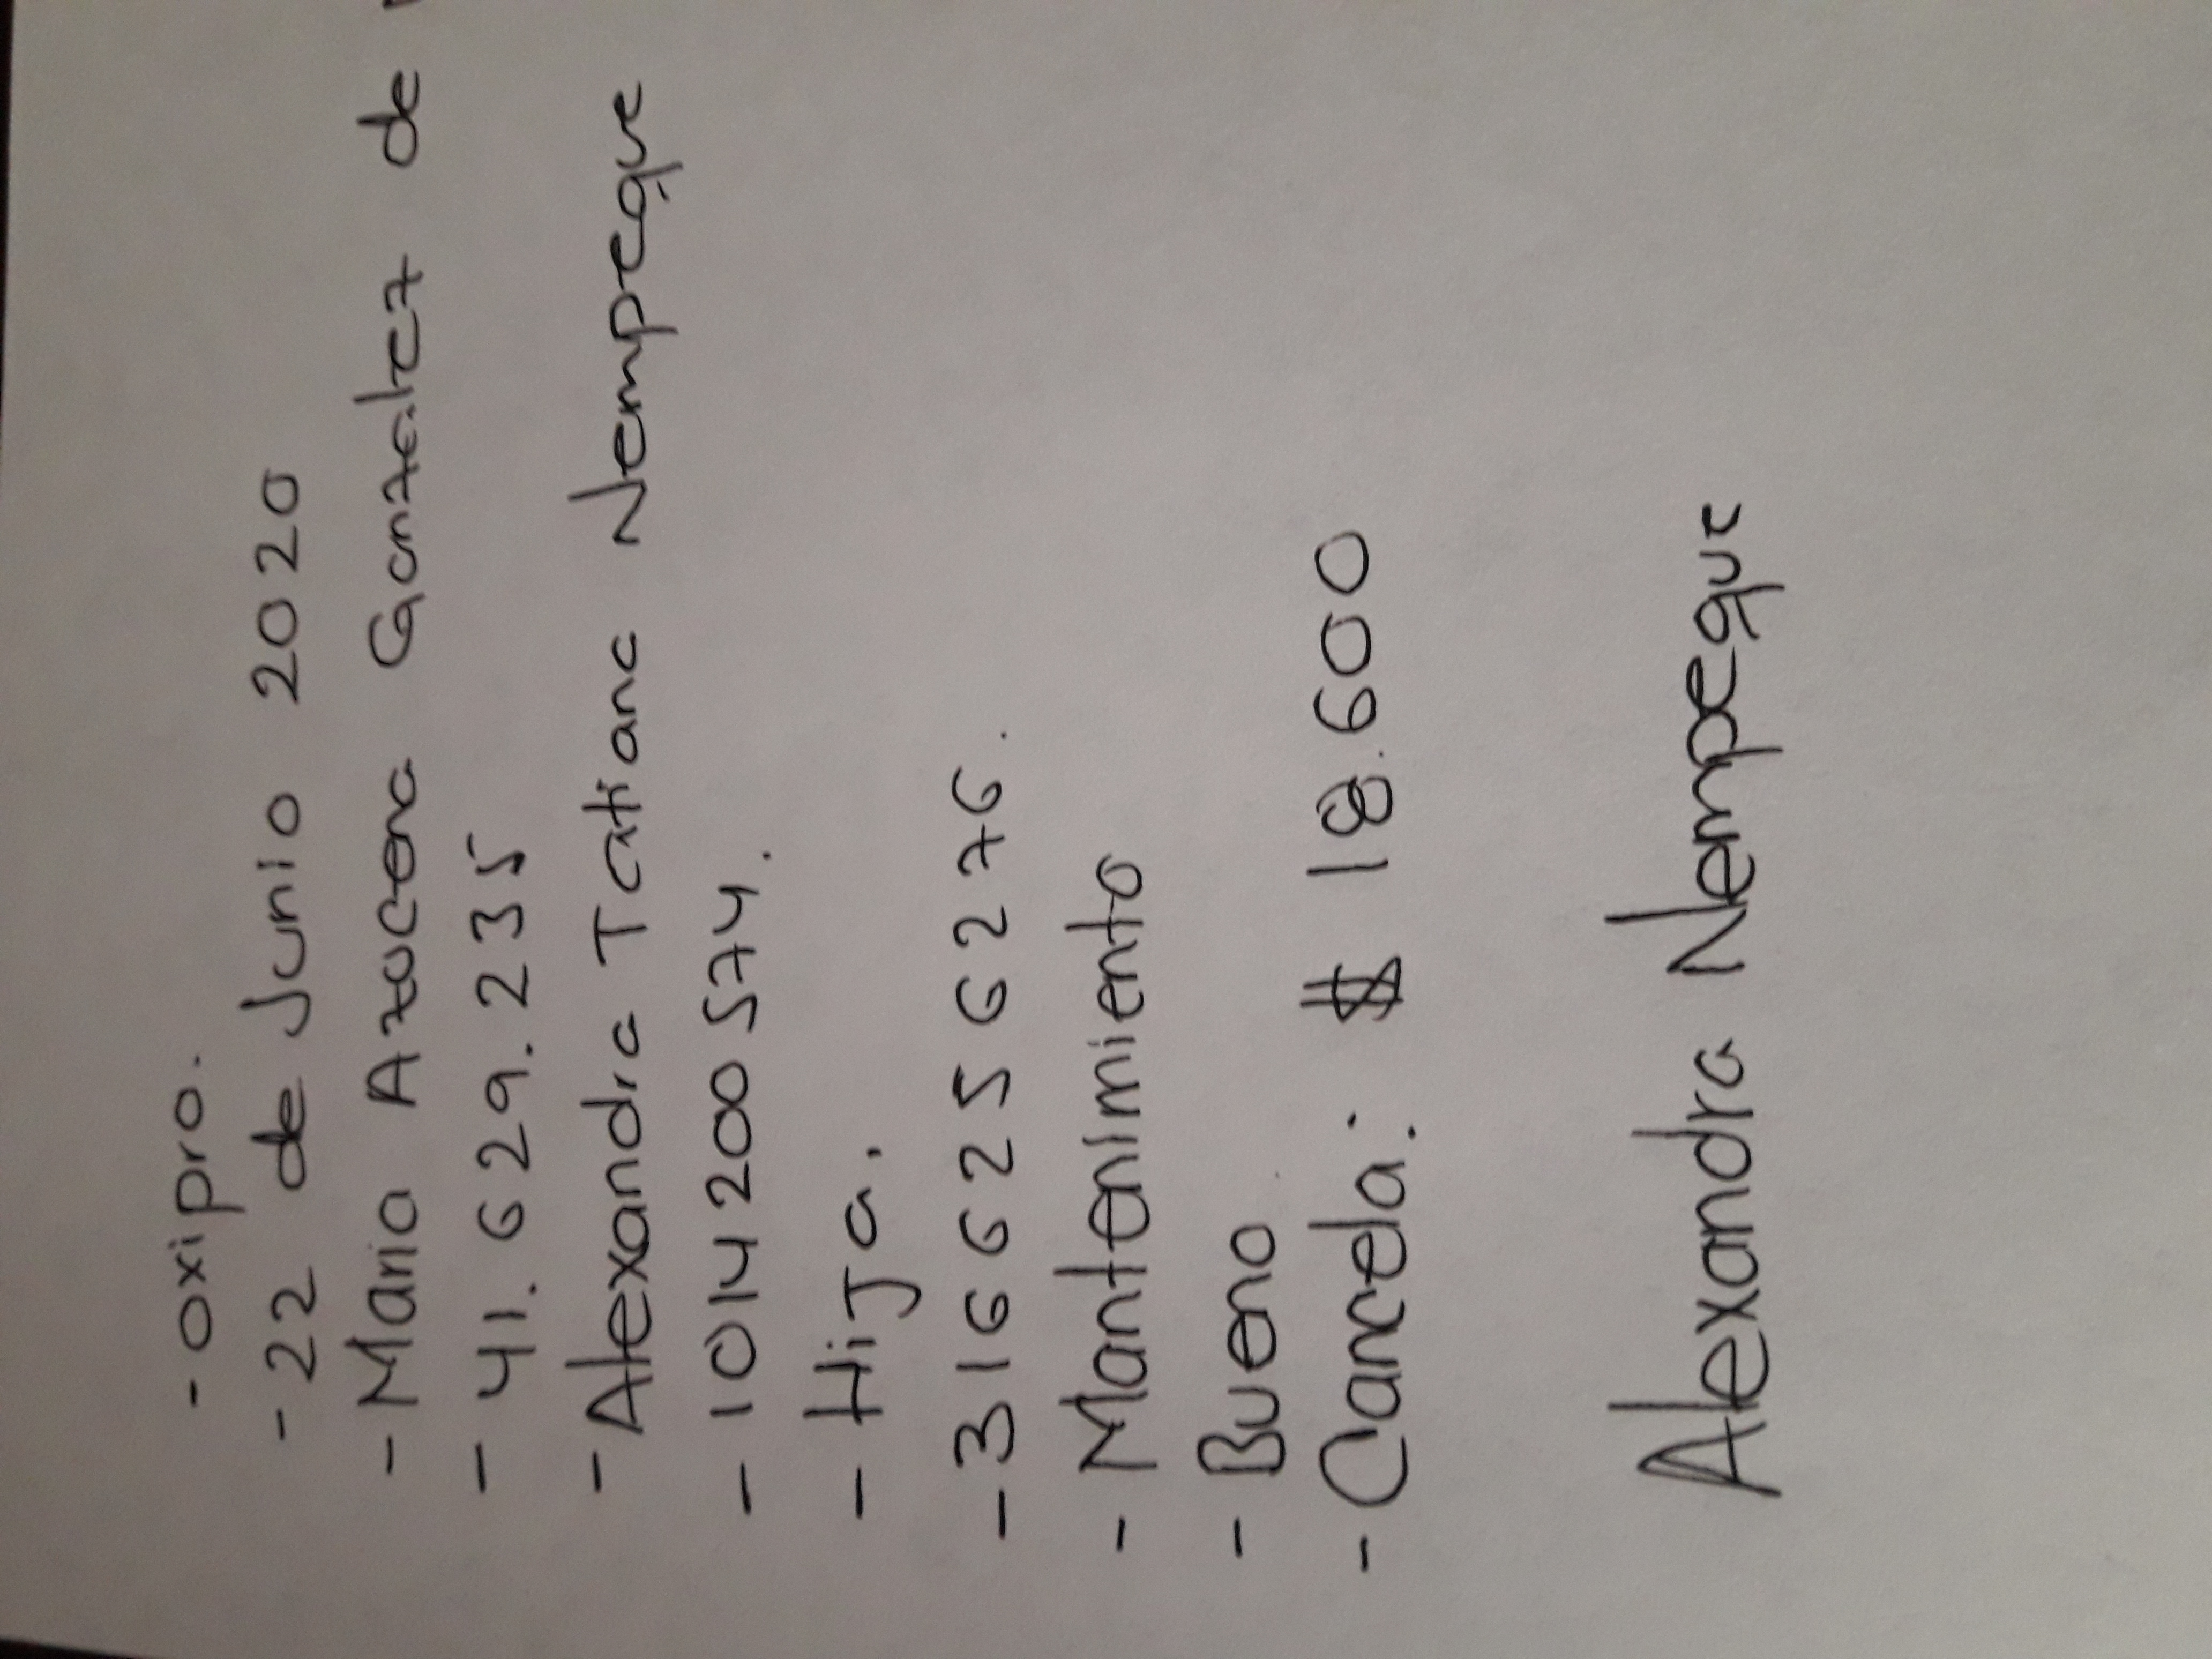 - oxipro.
- 22 de Junio 2020
- Maria Azucena Gonzalez de
- 41.629.235
- Alexandra Tatiana Nempeque
- 1014200574.
- Hija.
- 3166256276.
- Mantenimiento
- Bueno
- Cancela: $ 18.600
Alexandra Nempeque